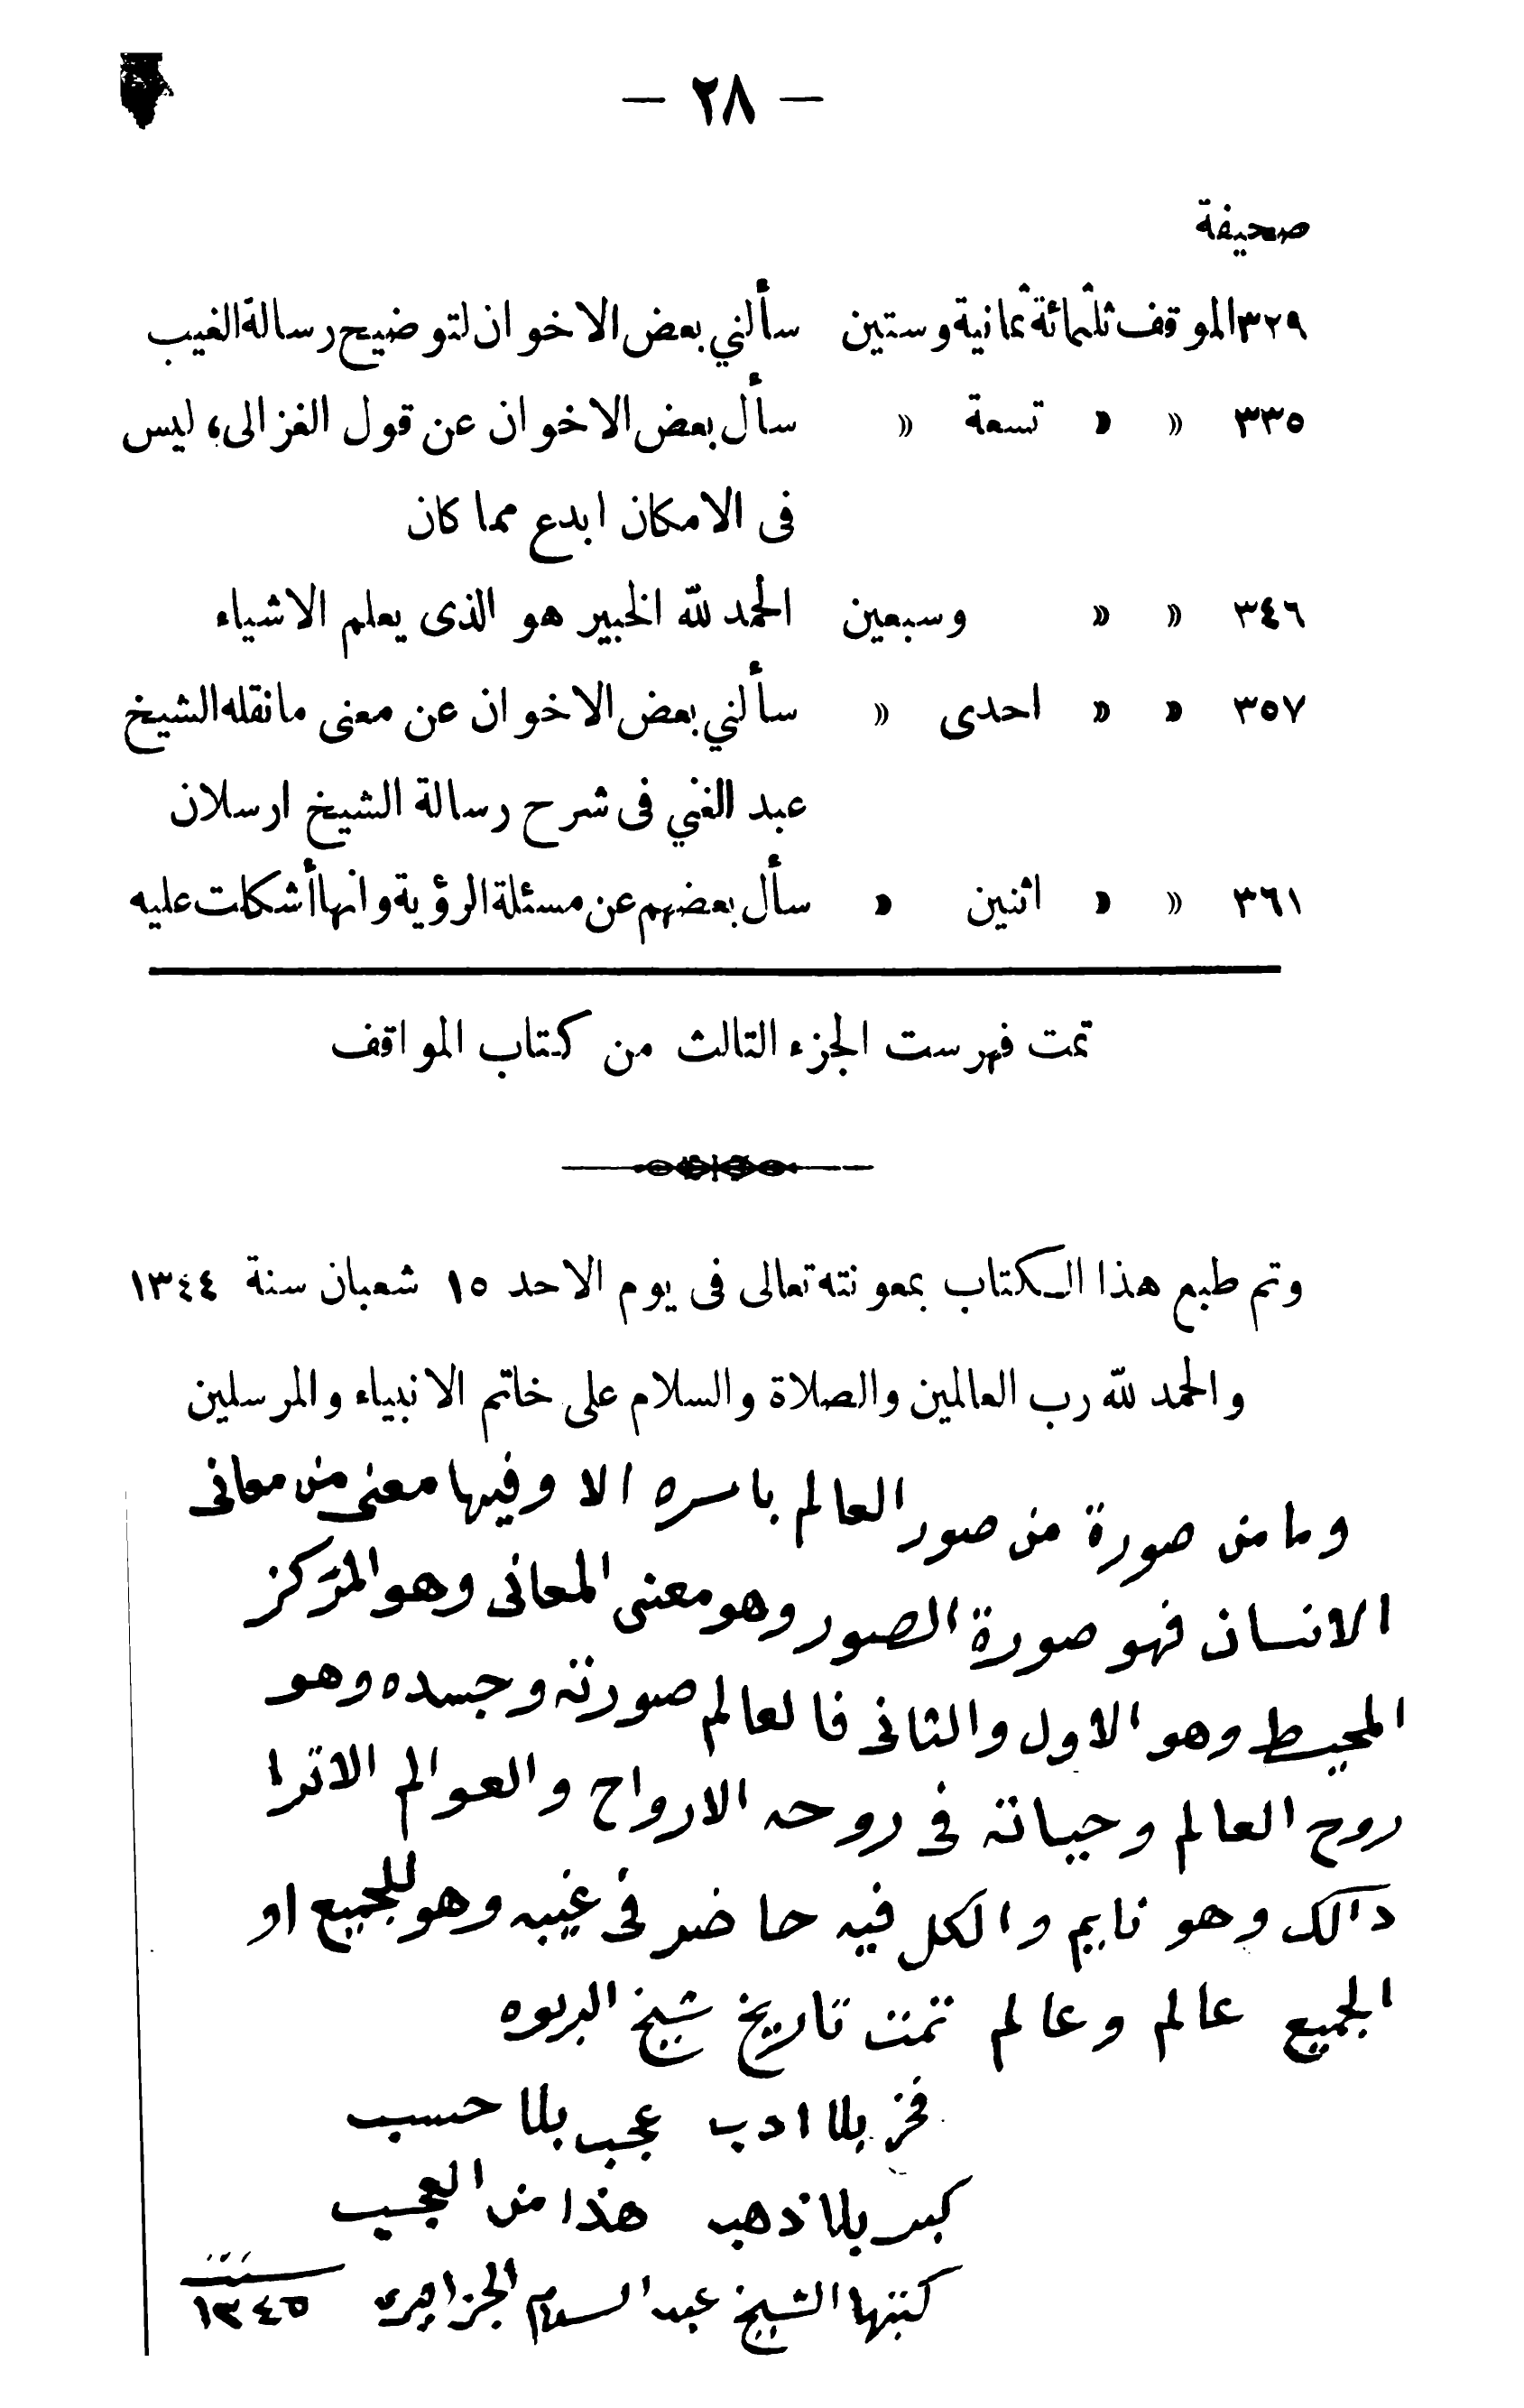 — ٢٨ —
صحيفة
٣٢٩ الموقف ثلثمائة ثمانية وستين سألني بعض الاخوان لتوضيح رسالة الغيب
٣٣٥ » » تسعة » سأل بعض الاخوان عن قول الغزالى، ليس
فى الامكان ابدع مما كان
٣٤٦ » » وسبعين الحمد لله الخبير هو الذى يعلم الاشياء
٣٥٧ » » احدى » سألني بعض الاخوان عن معنى مانقله الشيخ
عبد الغني فى شرح رسالة الشيخ ارسلان
٣٦١ » » اثنين » سأل بعضهم عن مسئلة الرؤية وانها أشكلت عليه
تمت فهرست الجزء الثالث من كتاب المواقف
وتم طبع هذا الكتاب بمعونته تعالى فى يوم الاحد ١٥ شعبان سنة ١٣٤٤
والحمد لله رب العالمين والصلاة والسلام على خاتم الانبياء والمرسلين
وما من صورة من صور العالم باسره الا وفيها معنى من معانى
الانسان فهو صورة الصور وهو معنى المعانى وهو المركز
المحيط وهو الاول والثانى فالعالم صورته وجسده وهو
روح العالم وحياته فى روحه الارواح والعوالم الا ترا
ذالك وهو نايم والكل فيه حاضر فى غيبه وهو للجميع او
الجميع عالم وعالم تمت تاريخ شيخ الربوه
فخر بلا ادب عجب بلا حسب
كبر بلا ذهب هذا من العجيب
كتبها الشيخ عبد السلام الجزايرى سنة ١٣٤٥